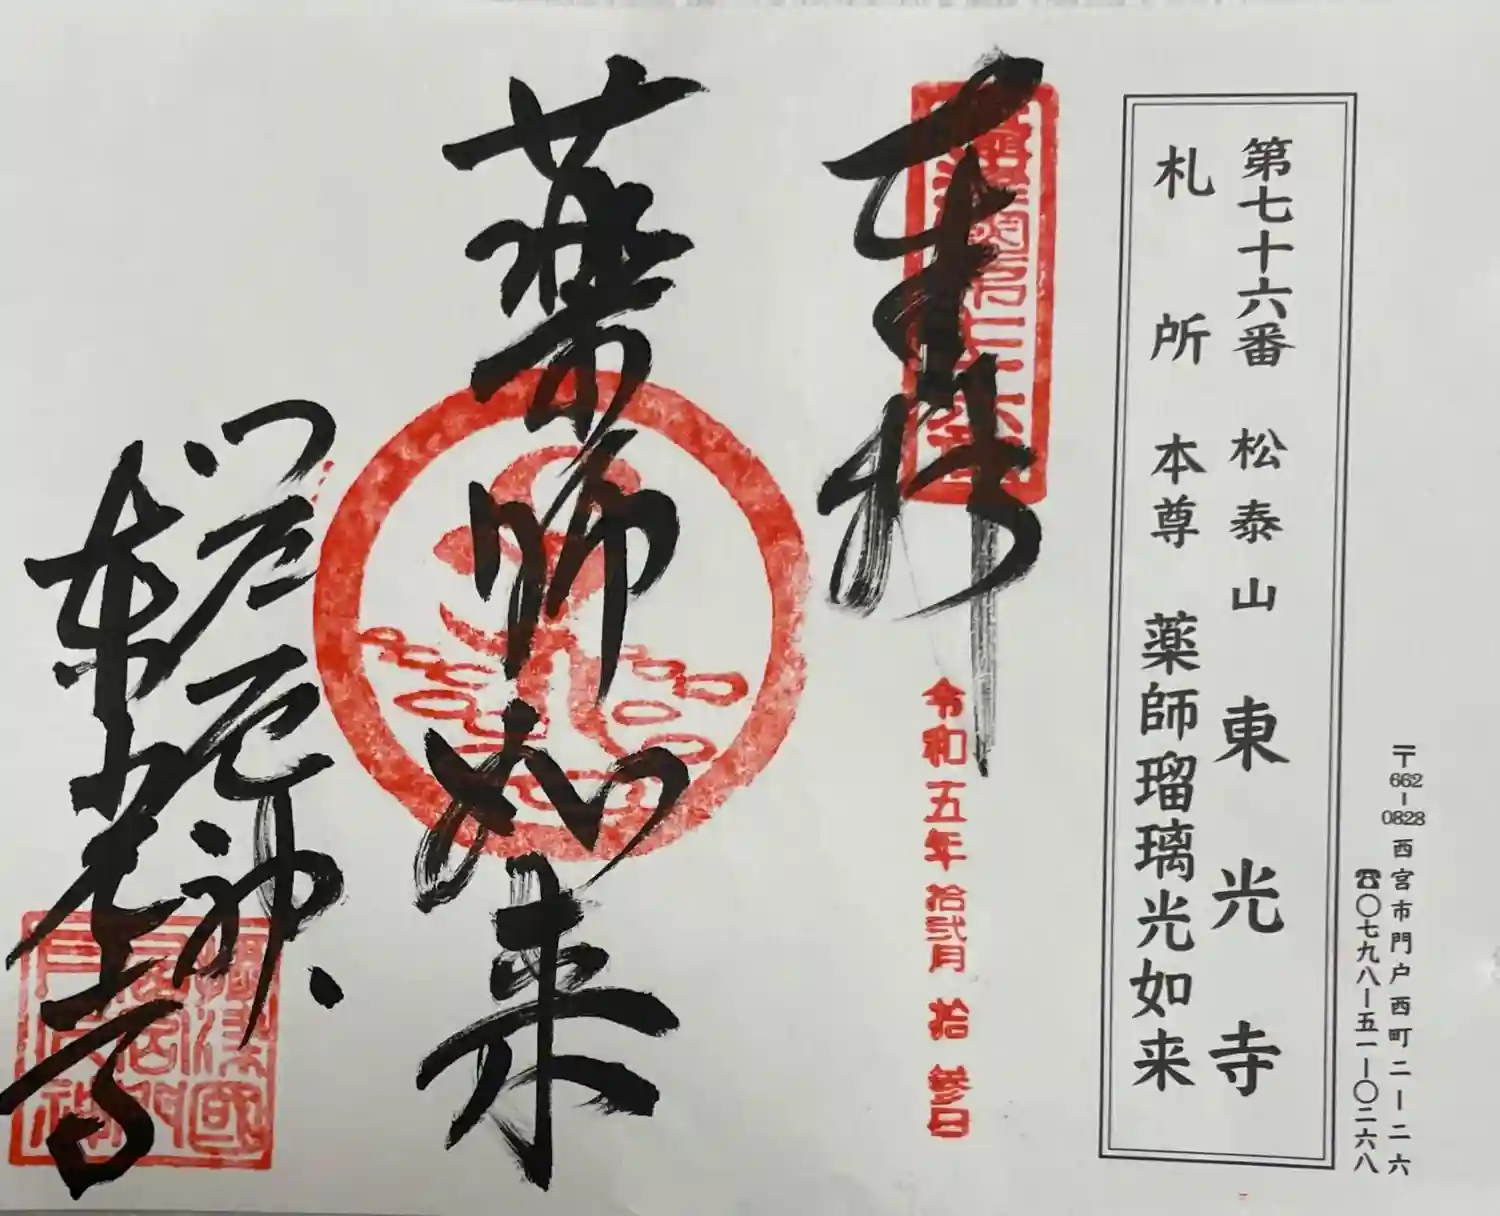 〒662-0828 西宮市門戸西町二ー二六
☎〇七九八ー五一ー〇二六八
第七十六番 松泰山 東光寺
札所 本尊 薬師瑠璃光如来
奉拝
令和五年拾弐月拾参日
薬師如来
門戸厄神
東光寺